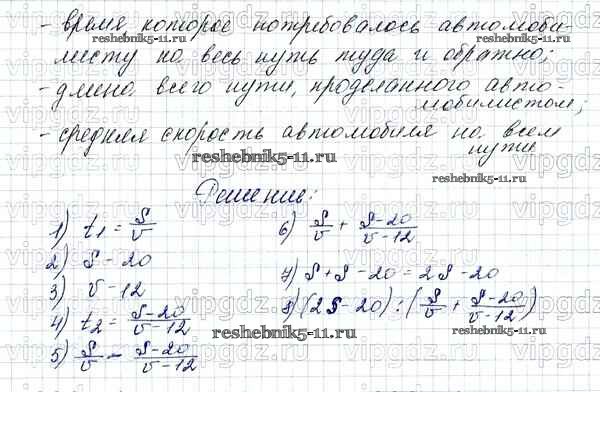 - время которое потребовалось автомоби-
reshebnik5-11.ru
reshebnik5-11.ru
листу на весь путь туда и обратно;
- длина всего пути, проделанного авто-
мобилистом;
- средняя скорость автомобиля на всем
пути
reshebnik5-11.ru
reshebnik5-11.ru
Решение:
1) t₁ = S/v
2) S - 20
3) v - 12
4) t₂ = S-20/v-12
5) S/v - S-20/v-12
6) S/v + S-20/v-12
7) S + S - 20 = 2S - 20
8) (2S - 20) : (S/v + S-20/v-12)
reshebnik5-11.ru
reshebnik5-11.ru